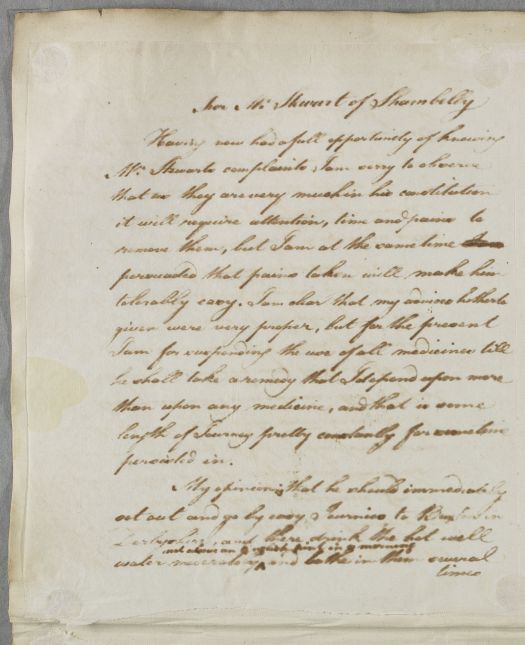 For Mr. Stewart of Shambelly
Having now had a full opportunity of knowing
Mr. Stewarts complaints I am sorry to observe
that as they are very much in his constitution
it will require attention, time and pains to
remove them, but I am at the same time
persuaded that pains taken will make him
tolerably easy. I am clear that my advices hitherto
given were very proper, but for the present
I am for suspending the use of all medicines till
he shall take a remedy that I depend upon more
than upon any medicine, and that is some
length of Journey pretty constantly for some time
persisted in.
My opinion is that he should immediately
set out and go by easy Journies to Buxton in
Derbyshire, and there drink the hot well
not above an English pint in a morning
water moderately and bathe in them several
times